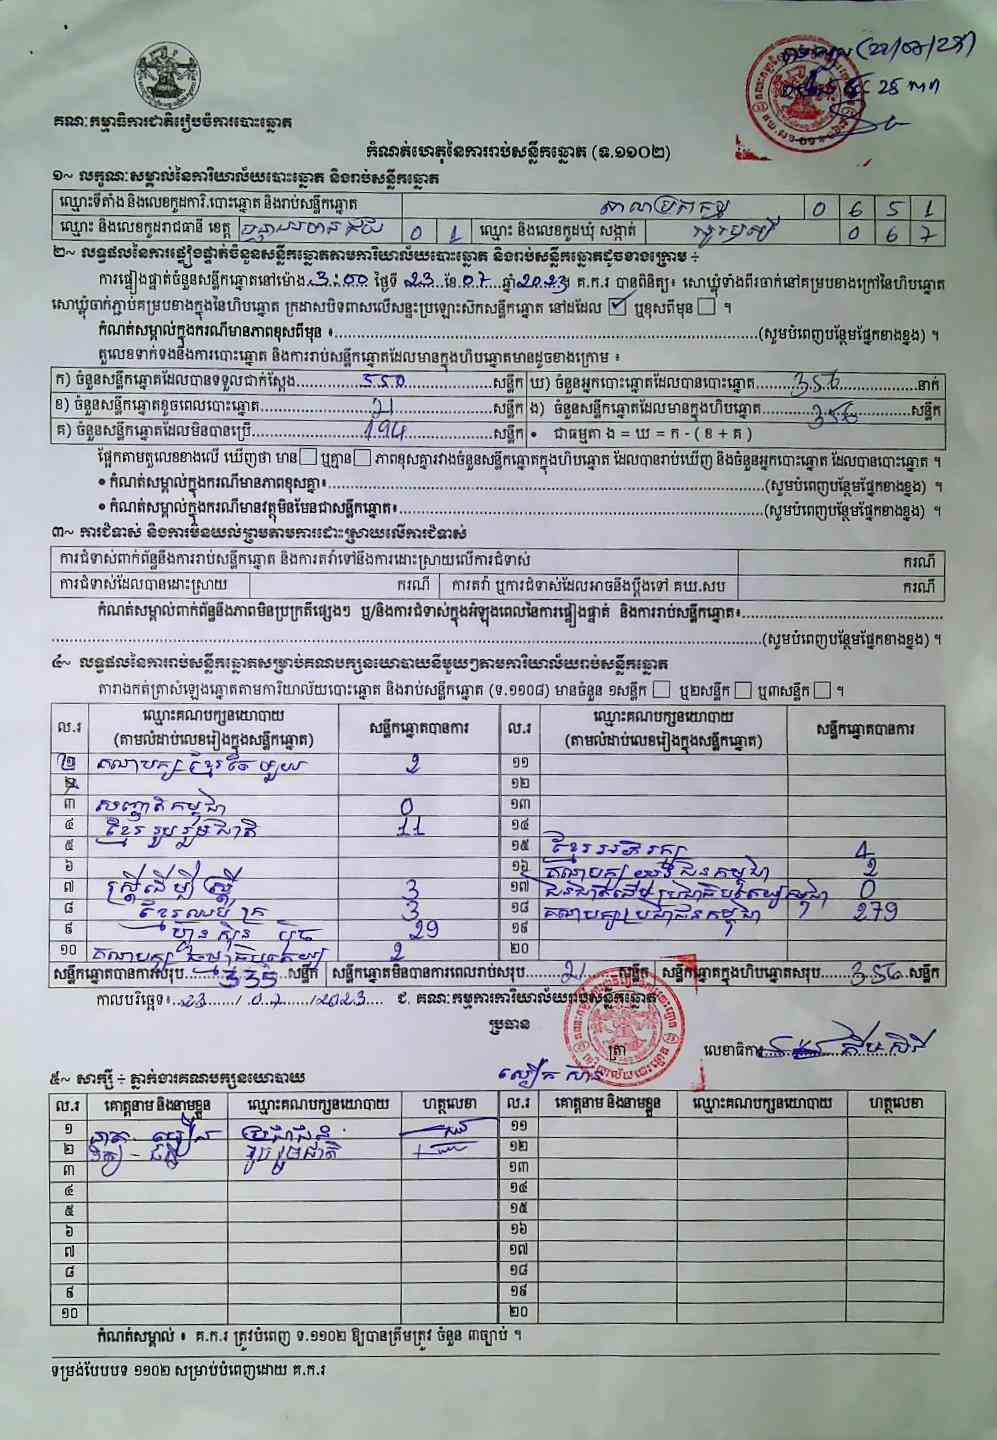 គណៈកម្មាធិការជាតិរៀបចំការបោះឆ្នោត
កំណត់ហេតុនៃការរាប់សន្លឹកឆ្នោត (ទ.១១០២)
១~ លក្ខណៈសម្គាល់នៃការិយាល័យបោះឆ្នោត និងរាប់សន្លឹកឆ្នោត
ឈ្មោះទីតាំង និងលេខកូដការិ.បោះឆ្នោត និងរាប់សន្លឹកឆ្នោត 0 6 5 1
ឈ្មោះ និងលេខកូដរាជធានី ខេត្ត បន្ទាយមានជ័យ 0 1 ឈ្មោះ និងលេខកូដឃុំ សង្កាត់ 0 6 7
២~ លទ្ធផលនៃការផ្ទៀងផ្ទាត់ចំនួនសន្លឹកឆ្នោតតាមការិយាល័យបោះឆ្នោត និងរាប់សន្លឹកឆ្នោតដូចខាងក្រោម ៖
ការផ្ទៀងផ្ទាត់ចំនួនសន្លឹកឆ្នោតនៅម៉ោង 3:00 ថ្ងៃទី 23 ខែ 07 ឆ្នាំ 2023 គ.ក.រ បានពិនិត្យ៖ សោឃ្លុំទាំងពីរចាក់នៅគម្របខាងក្រៅនៃហិបឆ្នោត
សោឃ្លុំចាក់ភ្ជាប់គម្របខាងក្នុងនៃហិបឆ្នោត ក្រដាសបិទពាសលើសន្ទះប្រឡោះសិកសន្លឹកឆ្នោត នៅដដែល ☑ ឬខុសពីមុន ☐ ។
កំណត់សម្គាល់ក្នុងករណីមានភាពខុសពីមុន ៖ (សូមបំពេញបន្ថែមផ្នែកខាងខ្នង) ។
តួលេខទាក់ទងនឹងការបោះឆ្នោត និងការរាប់សន្លឹកឆ្នោតដែលមានក្នុងហិបឆ្នោតមានដូចខាងក្រោម ៖
ក) ចំនួនសន្លឹកឆ្នោតដែលបានទទួលជាក់ស្តែង 550 សន្លឹក ឃ) ចំនួនអ្នកបោះឆ្នោតដែលបានបោះឆ្នោត 356 នាក់
ខ) ចំនួនសន្លឹកឆ្នោតខូចពេលបោះឆ្នោត សន្លឹក ង) ចំនួនសន្លឹកឆ្នោតដែលមានក្នុងហិបឆ្នោត 356 សន្លឹក
គ) ចំនួនសន្លឹកឆ្នោតដែលមិនបានប្រើ 194 សន្លឹក • ជាធម្មតា ង = ឃ = ក - ( ខ + គ )
ផ្អែកតាមតួលេខខាងលើ ឃើញថា មាន ☐ ឬគ្មាន ☐ ភាពខុសគ្នារវាងចំនួនសន្លឹកឆ្នោតក្នុងហិបឆ្នោត ដែលបានរាប់ឃើញ និងចំនួនអ្នកបោះឆ្នោត ដែលបានបោះឆ្នោត ។
• កំណត់សម្គាល់ក្នុងករណីមានភាពខុសគ្នា៖ (សូមបំពេញបន្ថែមផ្នែកខាងខ្នង) ។
• កំណត់សម្គាល់ក្នុងករណីមានវត្ថុមិនមែនជាសន្លឹកឆ្នោត៖ (សូមបំពេញបន្ថែមផ្នែកខាងខ្នង) ។
៣~ ការជំទាស់ និងការមិនយល់ព្រមតាមការដោះស្រាយលើការជំទាស់
ការជំទាស់ពាក់ព័ន្ធនឹងការរាប់សន្លឹកឆ្នោត និងការតវ៉ាទៅនឹងការដោះស្រាយលើការជំទាស់ ករណី
ការជំទាស់ដែលបានដោះស្រាយ ករណី ការតវ៉ា ឬការជំទាស់ដែលអាចនឹងប្តឹងទៅ គឃ.សប ករណី
កំណត់សម្គាល់ពាក់ព័ន្ធនឹងភាពមិនប្រក្រតីផ្សេងៗ ឬ/និងការជំទាស់ក្នុងអំឡុងពេលនៃការផ្ទៀងផ្ទាត់ និងការរាប់សន្លឹកឆ្នោត៖
(សូមបំពេញបន្ថែមផ្នែកខាងខ្នង) ។
៤~ លទ្ធផលនៃការរាប់សន្លឹកឆ្នោតសម្រាប់គណបក្សនយោបាយនីមួយៗតាមការិយាល័យរាប់សន្លឹកឆ្នោត
តារាងកត់ត្រាសំឡេងឆ្នោតតាមការិយាល័យបោះឆ្នោត និងរាប់សន្លឹកឆ្នោត (ទ.១១០៨) មានចំនួន ១សន្លឹក ☐ ឬ២សន្លឹក ☐ ឬ៣សន្លឹក ☐ ។
ល.រ ឈ្មោះគណបក្សនយោបាយ (តាមលំដាប់លេខរៀងក្នុងសន្លឹកឆ្នោត) សន្លឹកឆ្នោតបានការ ល.រ ឈ្មោះគណបក្សនយោបាយ (តាមលំដាប់លេខរៀងក្នុងសន្លឹកឆ្នោត) សន្លឹកឆ្នោតបានការ
គណបក្ស ខ្មែរតែមួយ 2 ១១
១២
៣ សញ្ជាតិកម្ពុជា 0 ១៣
៤ ខ្មែររួបរួមជាតិ 11 ១៤
៥ ១៥ ខ្មែរអភិរក្ស 4
៦ ១៦ គណបក្ស យុវជនកម្ពុជា 2
៧ ស្ត្រីដើម្បីស្ត្រី 3 ១៧ 0
៨ ខ្មែរឈប់ក្រ 3 ១៨ គណបក្សប្រជាជនកម្ពុជា 279
៩ ហ៊្វុនស៊ិនប៉ិច 29 ១៩
១០ 2 ២០
សន្លឹកឆ្នោតបានការសរុប 335 សន្លឹក សន្លឹកឆ្នោតមិនបានការពេលរាប់សរុប 21 សន្លឹក សន្លឹកឆ្នោតក្នុងហិបឆ្នោតសរុប 356 សន្លឹក
កាលបរិច្ឆេទ៖ 23 / 07 / 2023 ជ. គណៈកម្មការការិយាល័យរាប់សន្លឹកឆ្នោត
ប្រធាន
ត្រា លេខាធិការ
៥~ សាក្សី ៖ ភ្នាក់ងារគណបក្សនយោបាយ
ល.រ គោត្តនាម និងនាមខ្លួន ឈ្មោះគណបក្សនយោបាយ ហត្ថលេខា ល.រ គោត្តនាម និងនាមខ្លួន ឈ្មោះគណបក្សនយោបាយ ហត្ថលេខា
១ ប្រជាជន ១១
២ រួបរួមជាតិ ១២
៣ ១៣
៤ ១៤
៥ ១៥
៦ ១៦
៧ ១៧
៨ ១៨
៩ ១៩
១០ ២០
កំណត់សម្គាល់ ៖ គ.ក.រ ត្រូវបំពេញ ទ.១១០២ ឱ្យបានត្រឹមត្រូវ ចំនួន ៣ច្បាប់ ។
ទម្រង់បែបបទ ១១០២ សម្រាប់បំពេញដោយ គ.ក.រ